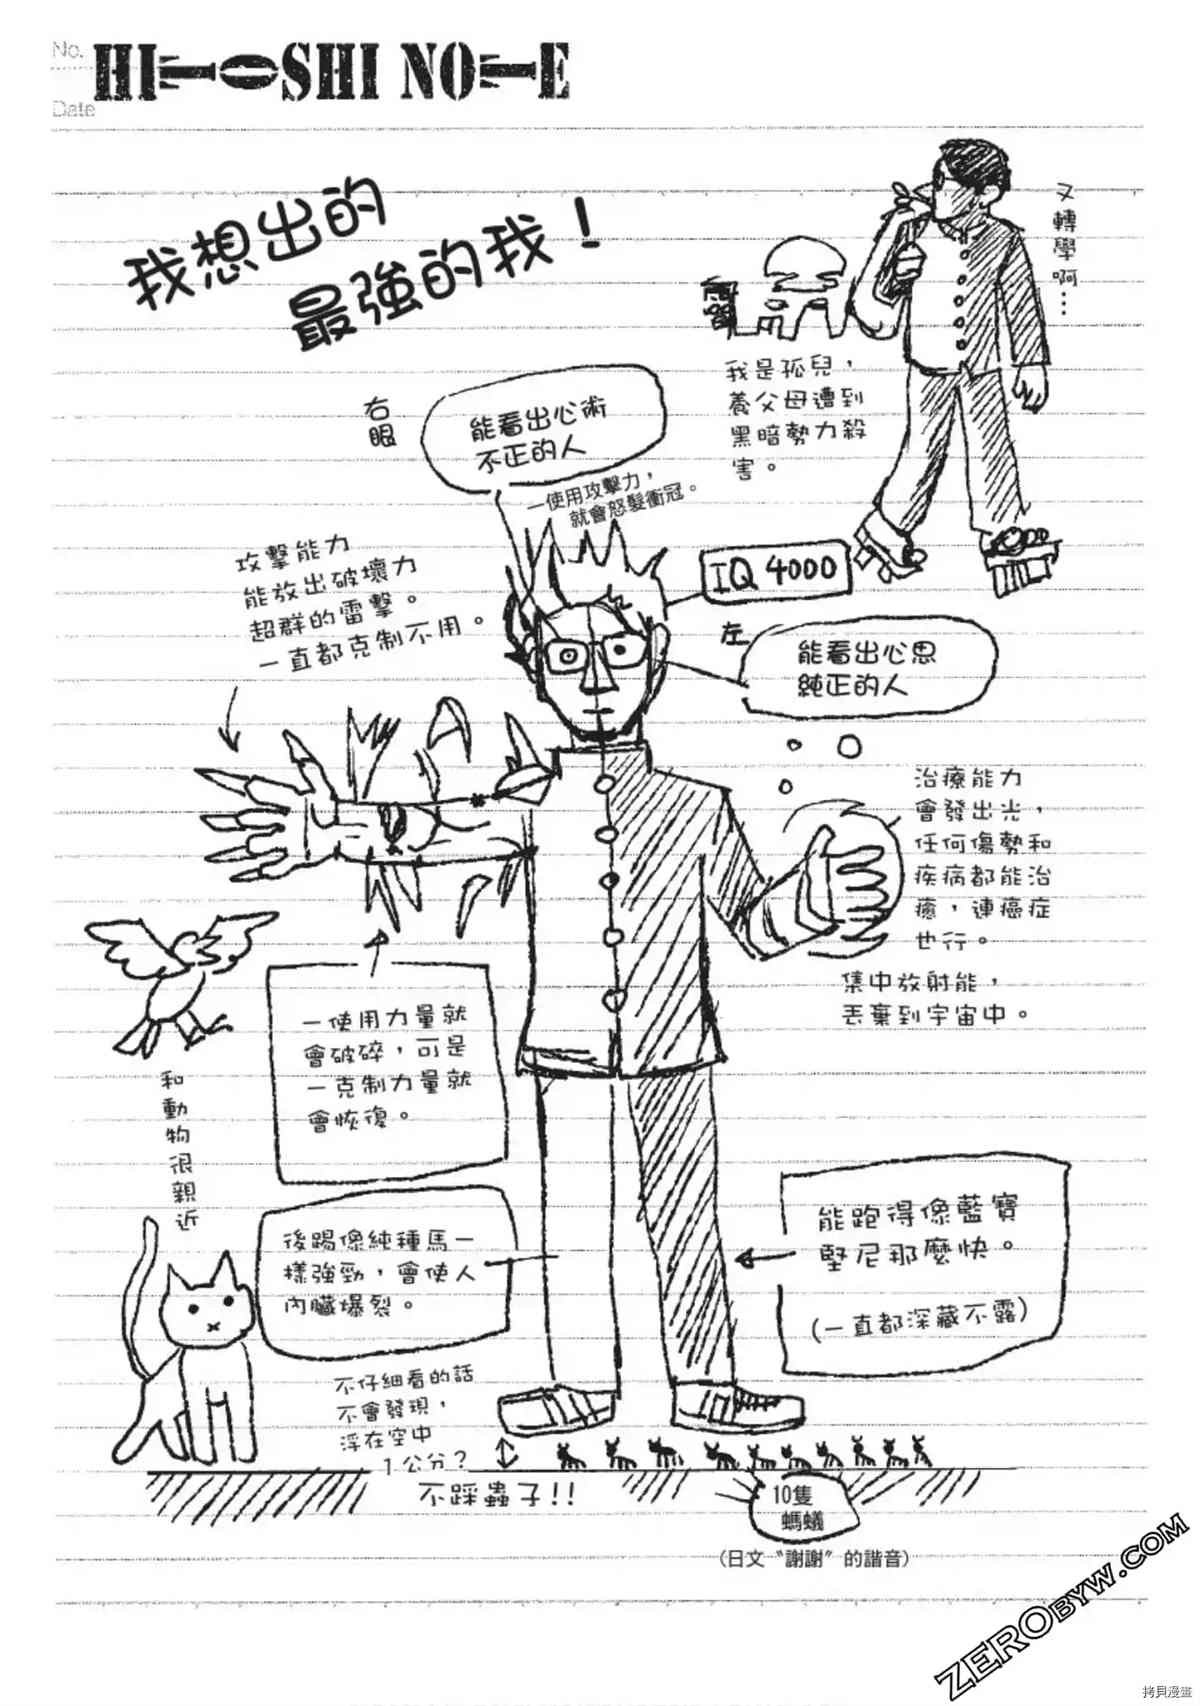 No.
HITOSHI NOTE
Date
我想出的
最強的我！
又轉學啊…
我是孤兒，
養父母遭到
黑暗勢力殺
害。
右眼
能看出心術
不正的人
一使用攻擊力，
就會怒髮衝冠。
IQ 4000
攻擊能力
能放出破壞力
超群的雷擊。
一直都克制不用。
左
能看出心思
純正的人
治療能力
會發出光，
任何傷勢和
疾病都能治
癒，連癌症
也行。
集中放射能，
丟棄到宇宙中。
一使用力量就
會破碎，可是
一克制力量就
會恢復。
和動物很親近
後踢像純種馬一
樣強勁，會使人
內臟爆裂。
能跑得像藍寶
堅尼那麼快。
(一直都深藏不露)
不仔細看的話
不會發現，
浮在空中
1公分？
不踩蟲子!!
10隻
螞蟻
(日文〝謝謝〞的諧音)
ZEROBYW.COM
拷貝漫畫